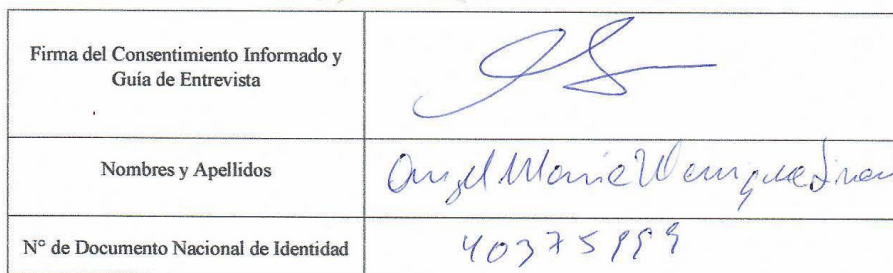 Firma del Consentimiento Informado y
Guía de Entrevista
Nombres y Apellidos
Angel Mario Manrique
N° de Documento Nacional de Identidad